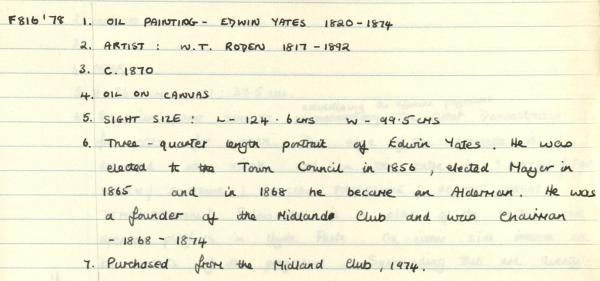 F816'78 1. OIL PAINTING - EDWIN YATES 1820-1874
2. ARTIST : W.T. RODEN 1817-1892
3. C. 1870
4. OIL ON CANVAS
5. SIGHT SIZE : L - 124.6 CMS W - 99.5 CMS
6. Three-quarter length portrait of Edwin Yates. He was
elected to the Town Council in 1856, elected Mayor in
1865 and in 1868 he became an Alderman. He was
a founder of the Midland Club and was Chairman
- 1868 - 1874
7. Purchased from the Midland Club, 1974.